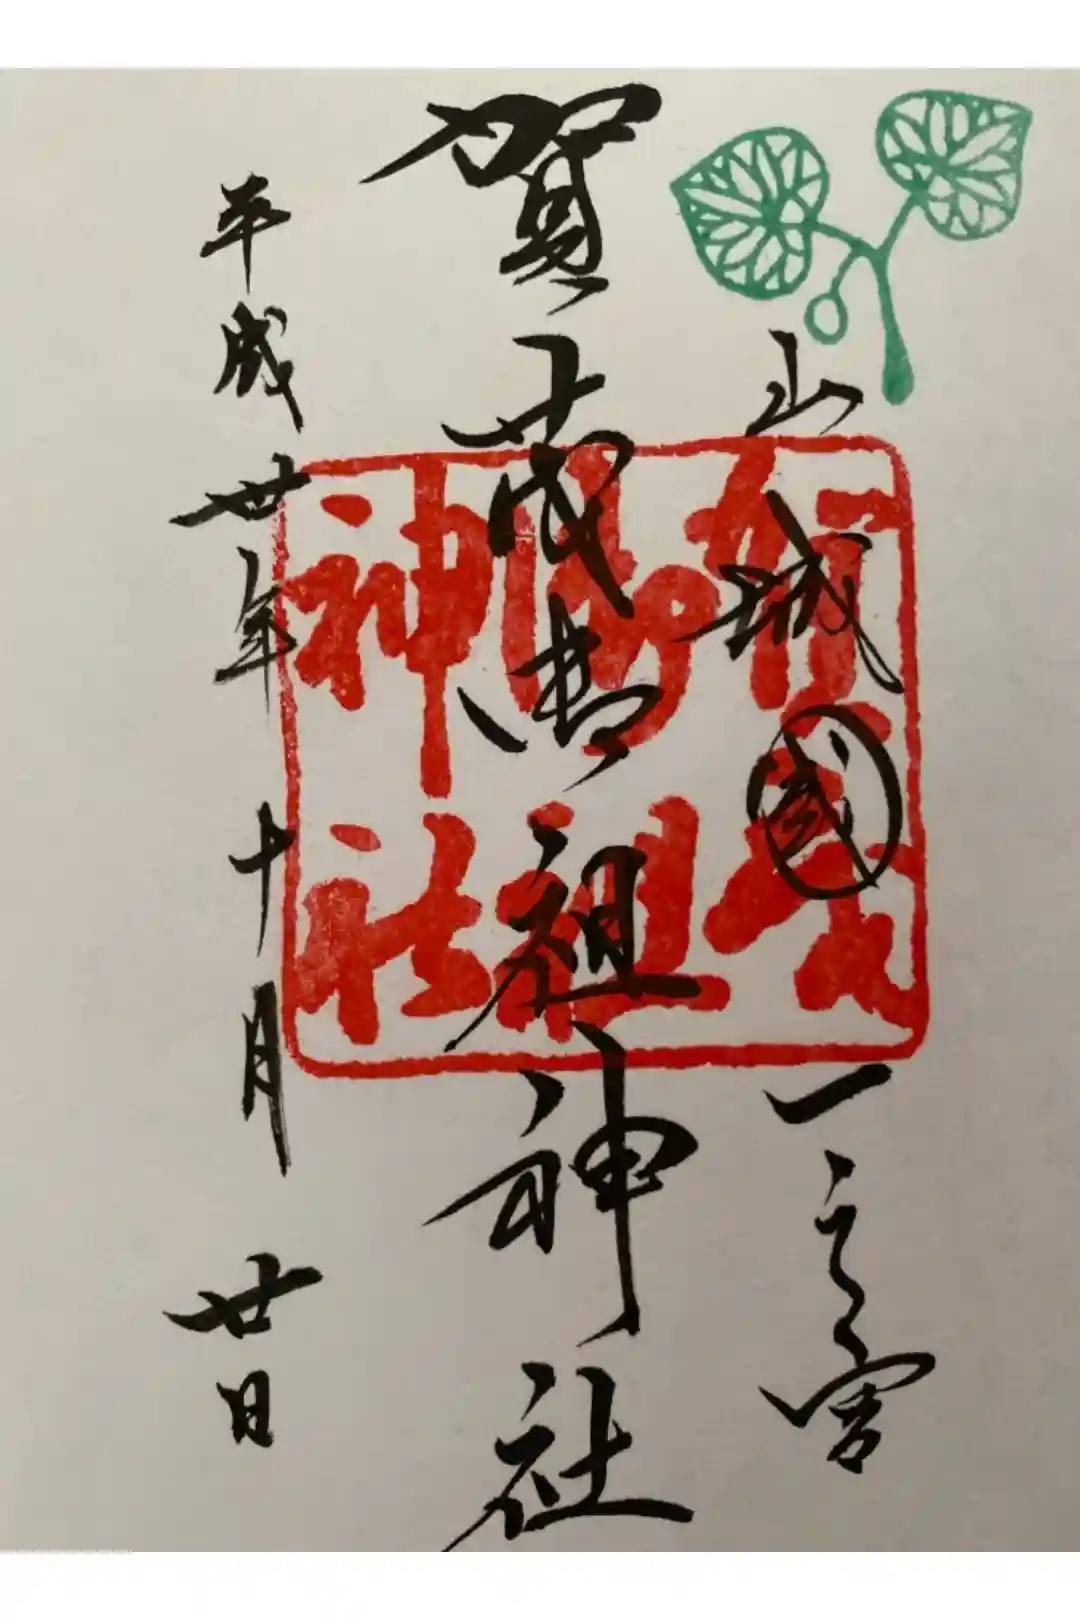 山城國一之宮
賀茂御祖神社
平成丗年十月廿日
賀茂
御祖
神社